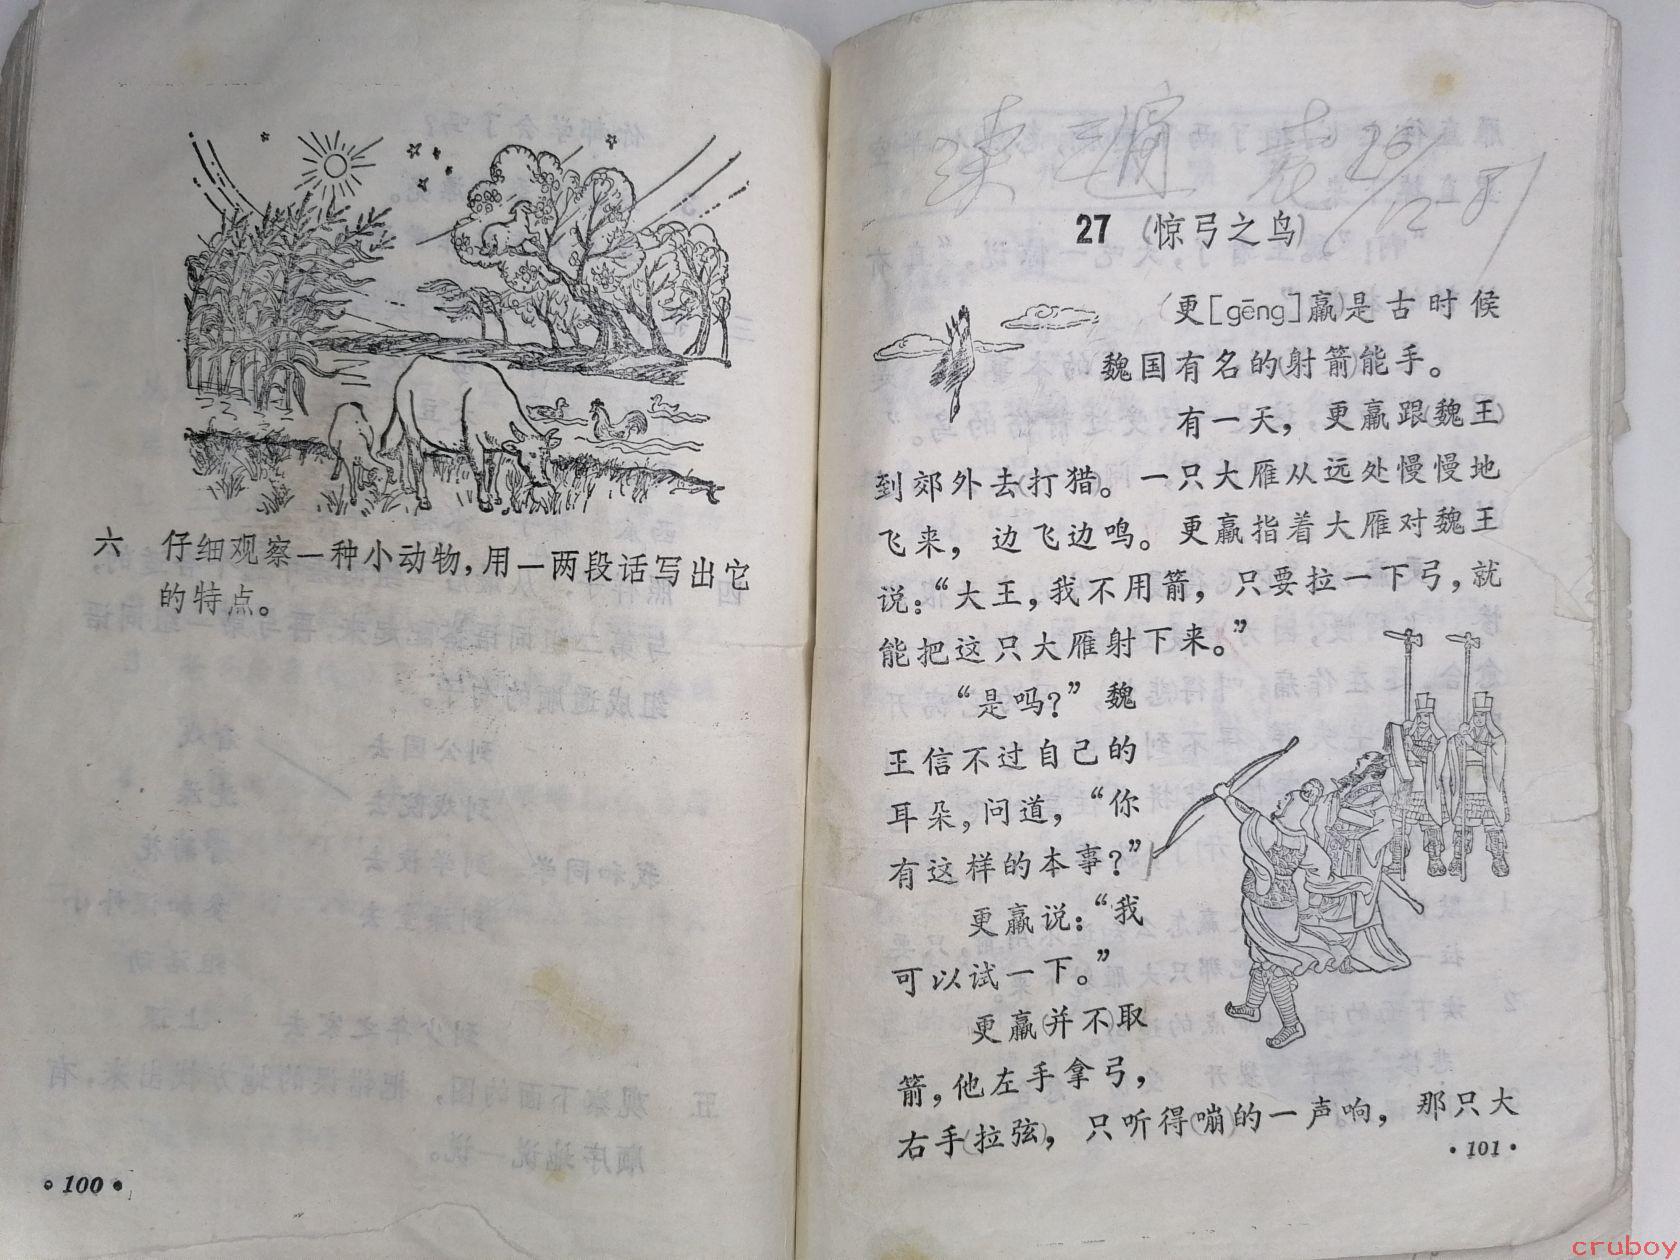 六 仔细观察一种小动物，用一两段话写出它
的特点。
·100·
读一遍
27 (惊弓之鸟)
(更[gēng]羸)是古时候
魏国有名的(射箭)能手。
有一天，更羸跟(魏王)
到郊外去(打猎)。一只大雁从远处慢慢地
飞来，边飞边鸣。更羸指着大雁对魏王
说：“大王，我不用箭，只要拉一下弓，就
能把这只大雁射下来。”
“是吗？”魏
王信不过自己的
耳朵，问道，“你
有这样的本事？”
更羸说：“我
可以试一下。”
更羸(并不)取
箭，他左手拿弓，
右手(拉弦)，只听得(嘣)的一声响，那只大
·101·
cruboy